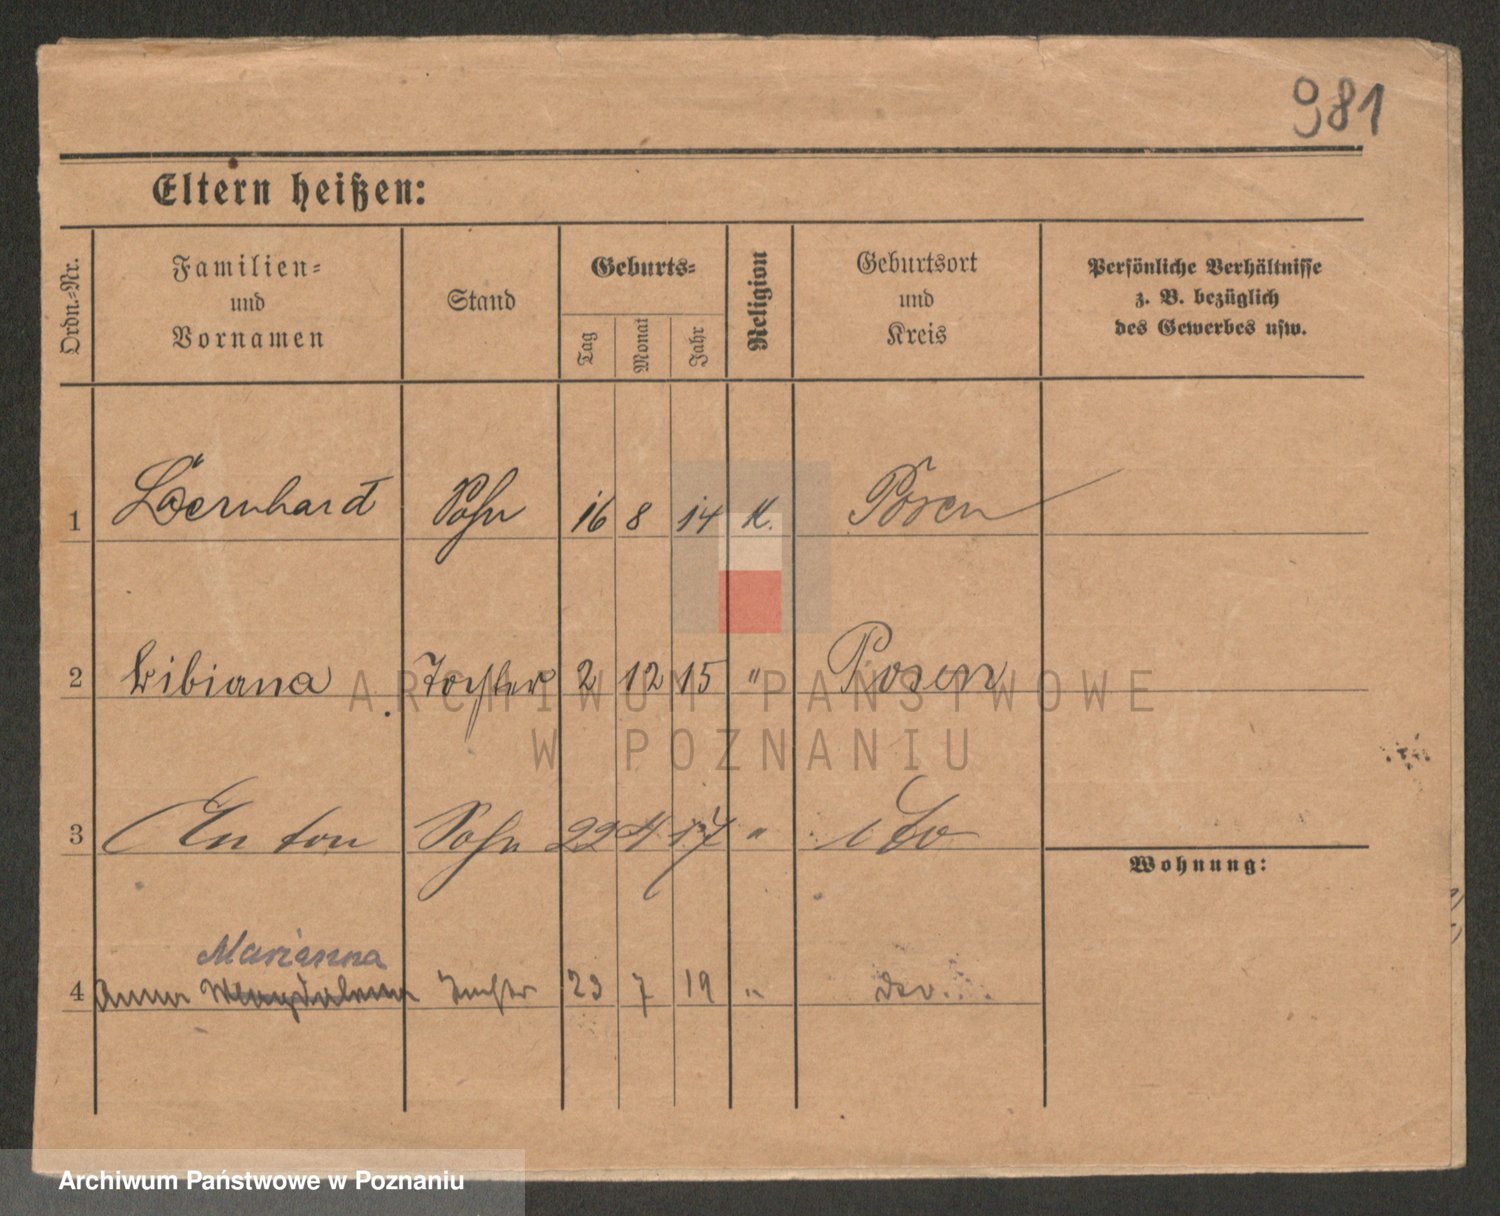 981
Eltern heißen:
Ordn.-Nr.
Familien-
und
Vornamen
Stand
Geburts-
Tag
Monat
Jahr
Religion
Geburtsort
und
Kreis
Persönliche Verhältnisse
z. B. bezüglich
des Gewerbes usw.
1 Bernhard Sohn 16 8 14 K. Posen
2 Bibiana Tochter 2 12 15 " Posen
3 Anton Sohn 22 4 17 " dto
Wohnung:
Marianna
4 Anna Magdalena Tochter 23 7 19 " dto.
ARCHIWUM PAŃSTWOWE
W POZNANIU
Archiwum Państwowe w Poznaniu